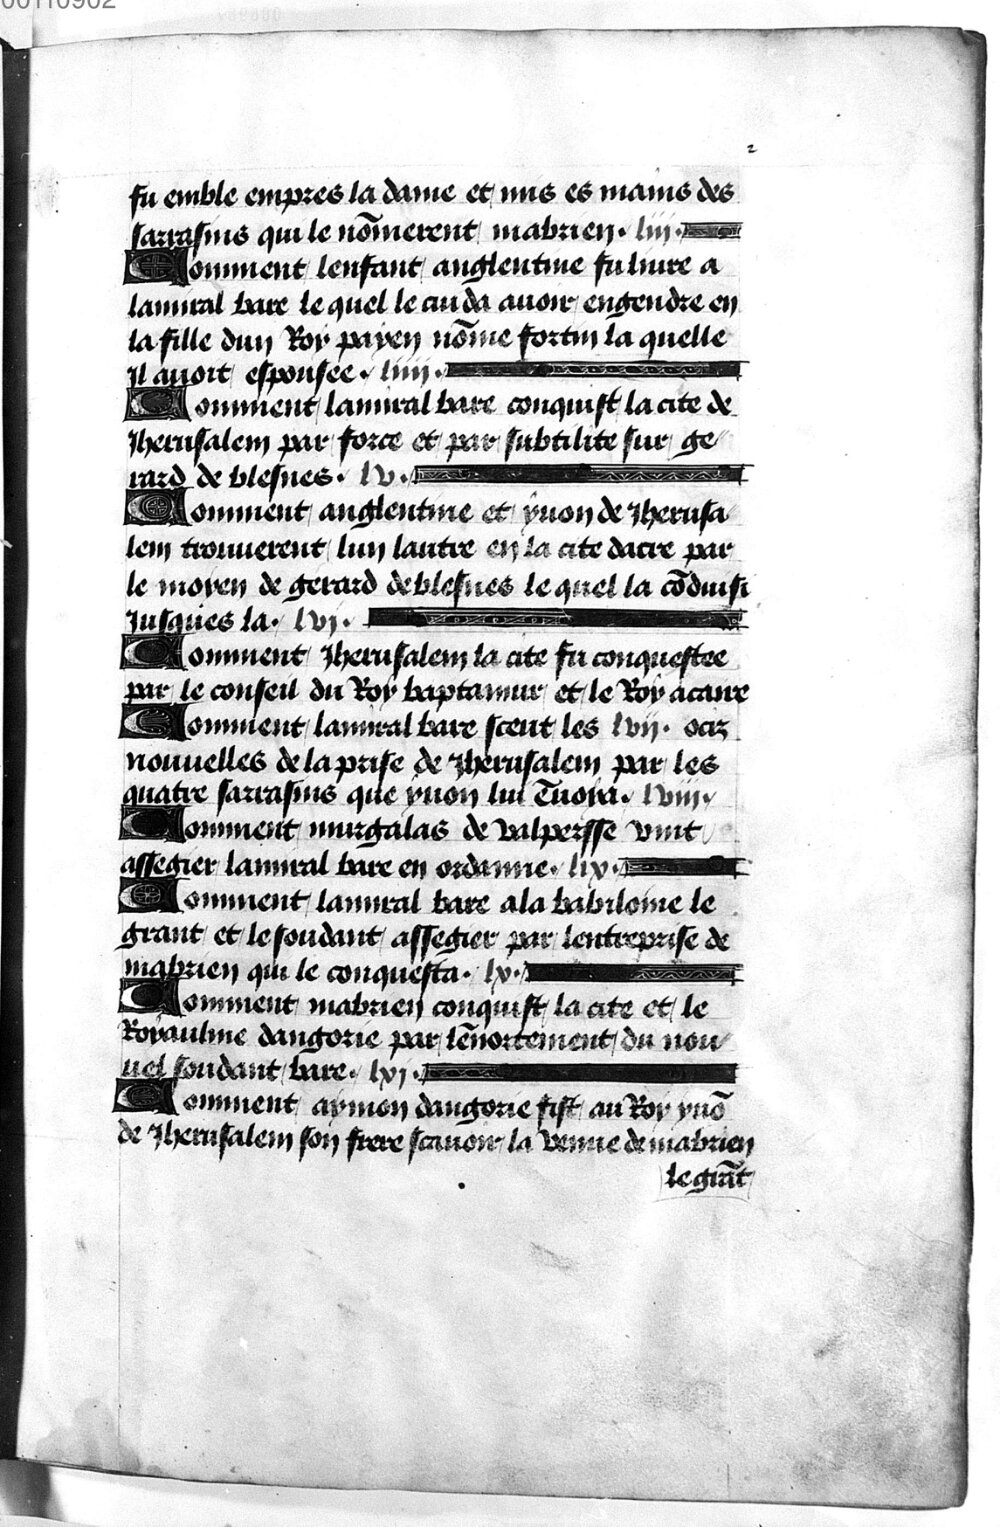 00110902
2
fu emble empres la dame et mis es mains des
sarrasins qui le nōmerent mabrien. liii.
Comment lenfant anglentine fu liure a
lamiral bare le quel le cuida auoir engendre en
la fille dun Roy payen nōme fortin la quelle
Il auoit espousee. liiii.
Comment lamiral bare conquist la cite de
Jherusalem par force et par subtilite sur ge
rard de blesues. lv.
Comment anglentine et yuon de Jherusa
lem trouuerent lun lautre en la cite dacre par
le moyen de gerard de blesues le quel la cōduisi
Jusques la. lvi.
Comment Jherusalem la cite fu conquestee
par le conseil du Roy baptamur et le Roy acaire
Comment lamiral bare sceut les lvii. ociz
nouuelles de la prise de Jherusalem par les
quatre sarrasins que yuon lui ēuoia. lviii.
Comment murgalas de valpersse vint
assegier lamiral bare en ordanne. lix.
Comment lamiral bare ala babiloine le
grant et le soudant assegier par lentreprise de
mabrien qui le conquesta. lx.
Comment mabrien conquist la cite et le
Royaulme dangorie par lēnortement du nou
uel soudant bare. lxi.
Comment aymon dangorie fist au Roy yuō
de Jherusalem son frere scauoir la venue de mabrien
le grāt